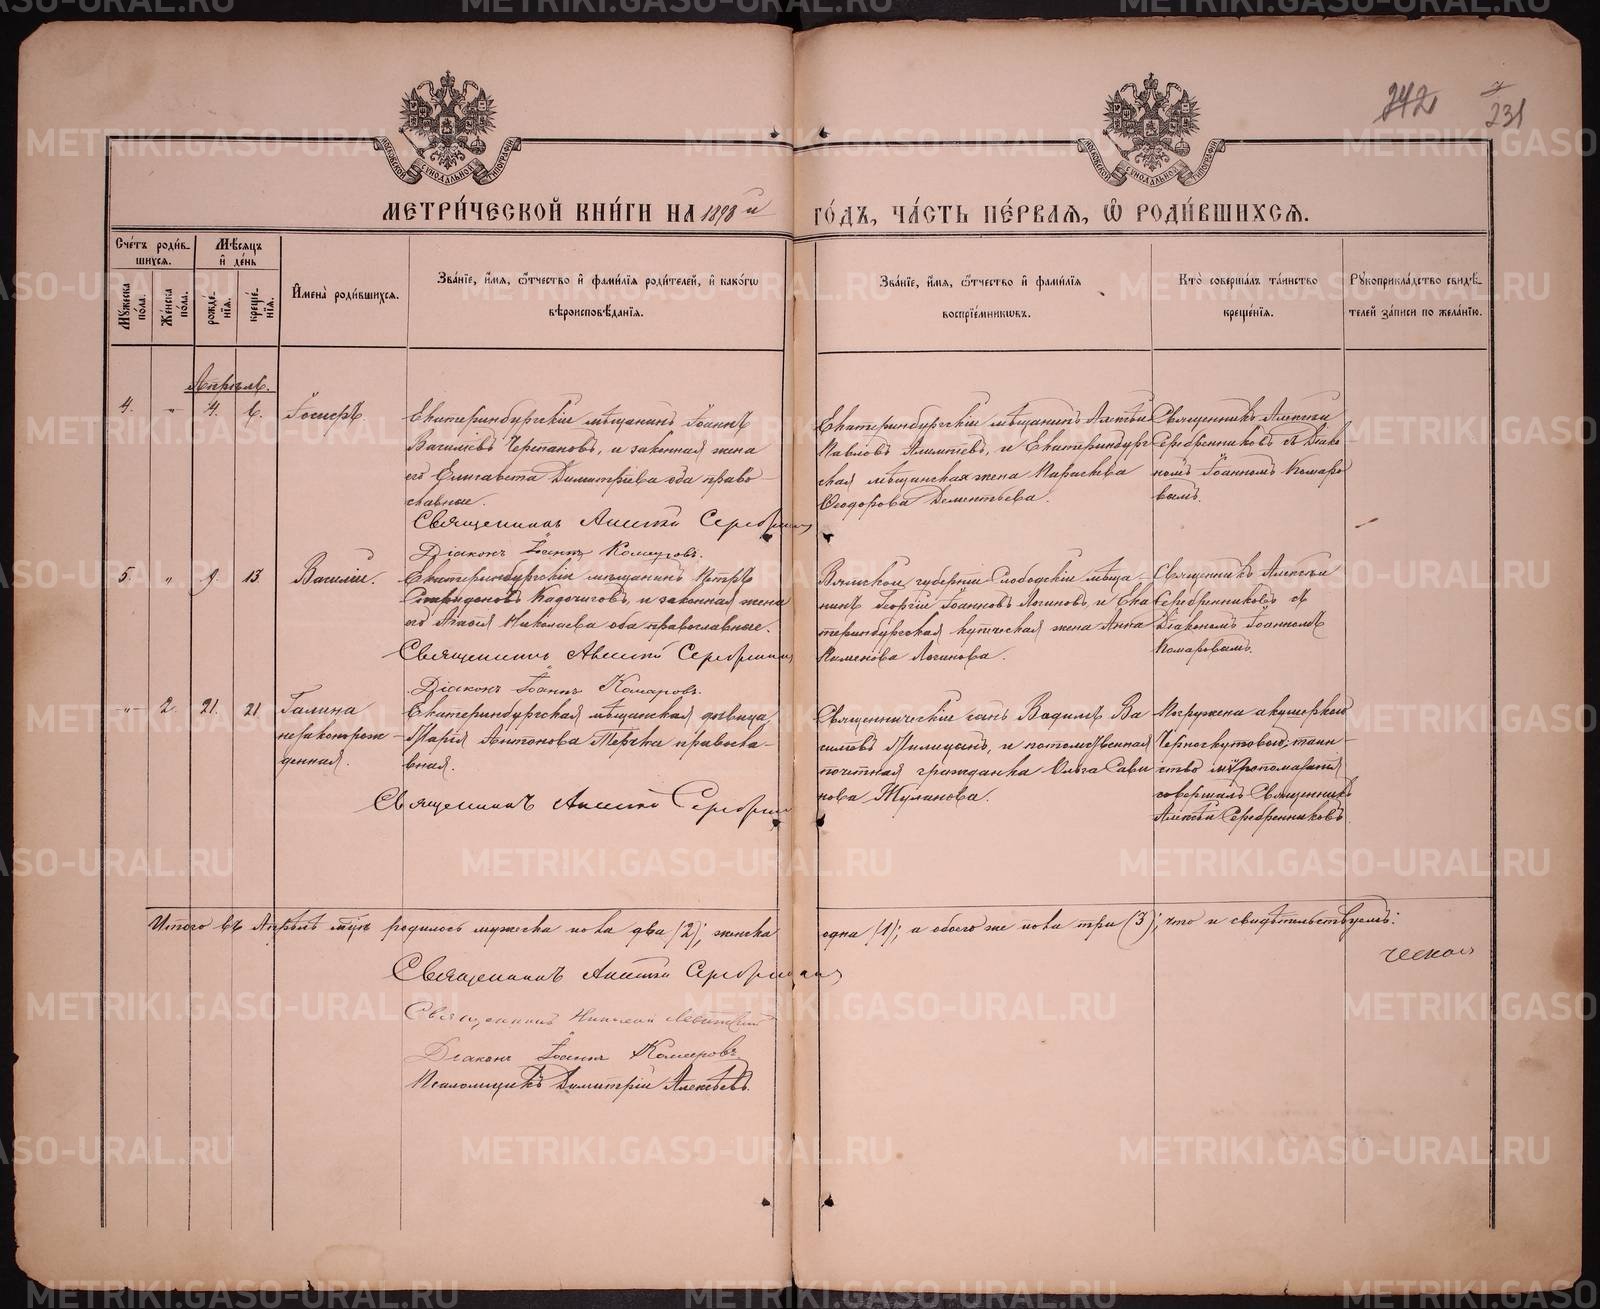 242
231
МОСКОВСКОЙ СѴНОДАЛЬНОЙ ТИПОГРАФІИ
МОСКОВСКОЙ СѴНОДАЛЬНОЙ ТИПОГРАФІИ
МЕТРИ́ЧЕСКОЙ КНИ́ГИ НА 1898 й ГО́ДЪ, ЧА́СТЬ ПЕ́РВАѦ, Ѡ РОДИ́ВШИХСѦ.
Сче́тъ роди́в-
шихсѧ.
Мꙋ́жеска
по́ла.
Же́нска
по́ла.
Мѣ́сѧцъ
и҆ де́нь
рожде́-
нїѧ.
креще́-
нїѧ.
И҆мена̀ роди́вшихсѧ.
Зва́нїе, и҆́мѧ, ѻ҆́тчество и҆ фами́лїѧ роди́телей, и҆ како́гѡ
вѣроисповѣ́данїѧ.
Зва́нїе, и҆́мѧ, ѻ҆́тчество и҆ фами́лїѧ
воспрїе́мникѡвъ.
Кто̀ соверша́лъ та́инство
креще́нїѧ.
Рꙋкоприкла́дство свидѣ́-
телей за́писи по жела́нїю.
Апрѣль.
4. " 4. 6. Іосифъ
Екатеринбургскій мѣщанинъ Іоаннъ
Василіевъ Черепановъ, и законная жена
его Елисавета Димитріева оба право-
славные.
Священникъ Алексѣй Серебрен
Діаконъ Іоаннъ Комаровъ.
Екатеринбургскій мѣщанинъ
Павловъ и Екатеринбург
ская мѣщанская жена Параскева
Ѳеодорова Дементьева.
Священникъ Алексѣй
Серебренниковъ съ Діако
номъ Іоанномъ Комаро
вымъ.
5. " 9. 13. Василій.
Екатеринбургскій мѣщанинъ Петръ
Спиридоновъ и законная жена
его Николаева оба православные.
Священникъ Алексѣй Серебренник
Діаконъ Іоаннъ Комаровъ.
Вятской губерніи Слободскій мѣща-
нинъ Георгій Іоанновъ Логиновъ, и Ека
теринбургская купеческая жена Анна
Логинова.
Священникъ Алексѣй
Серебренниковъ съ
Діакономъ Іоанномъ
Комаровымъ.
" 2. 21. 21 Галина
незаконорож-
денная.
Екатеринбургская мѣщанская дѣвица
Марія Антонова православ-
ная.
Священникъ Алексѣй Серебрен
Священническій сынъ Вадимъ Ва
сильевъ и потомственная
почетная гражданка Ольга Сави
нова Жуланова.
Погружена акушеркою
таин-
ство мѵропомазанія
совершалъ Священникъ
Алексѣй Серебренниковъ.
Итого въ Апрѣлѣ мѣсяцѣ родилось мужеска пола два (2); женска одна (1); а обоего же пола три (3); что и свидѣтельствуемъ:
Священникъ Алексѣй Серебренник
Священникъ Николай Левитскій
Діаконъ Іоаннъ Комаровъ
Псаломщикъ Димитрій Алексѣевъ.
ческой
METRIKI.GASO-URAL.RU